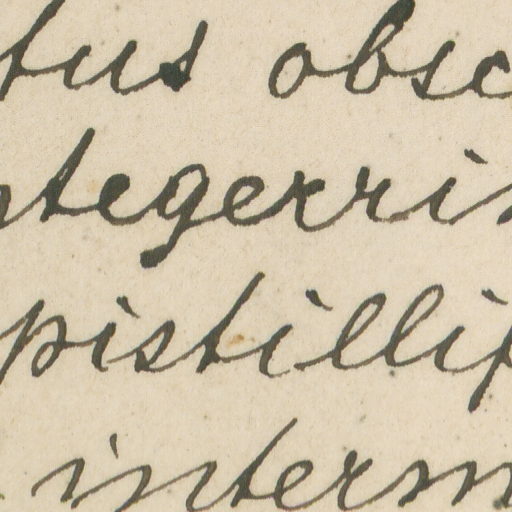 tus obsc
ntegerri
pistillif
interm